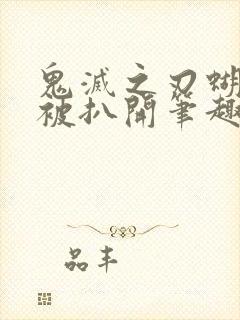 鬼滅之刃蝴
被扒開筆趣
品丰